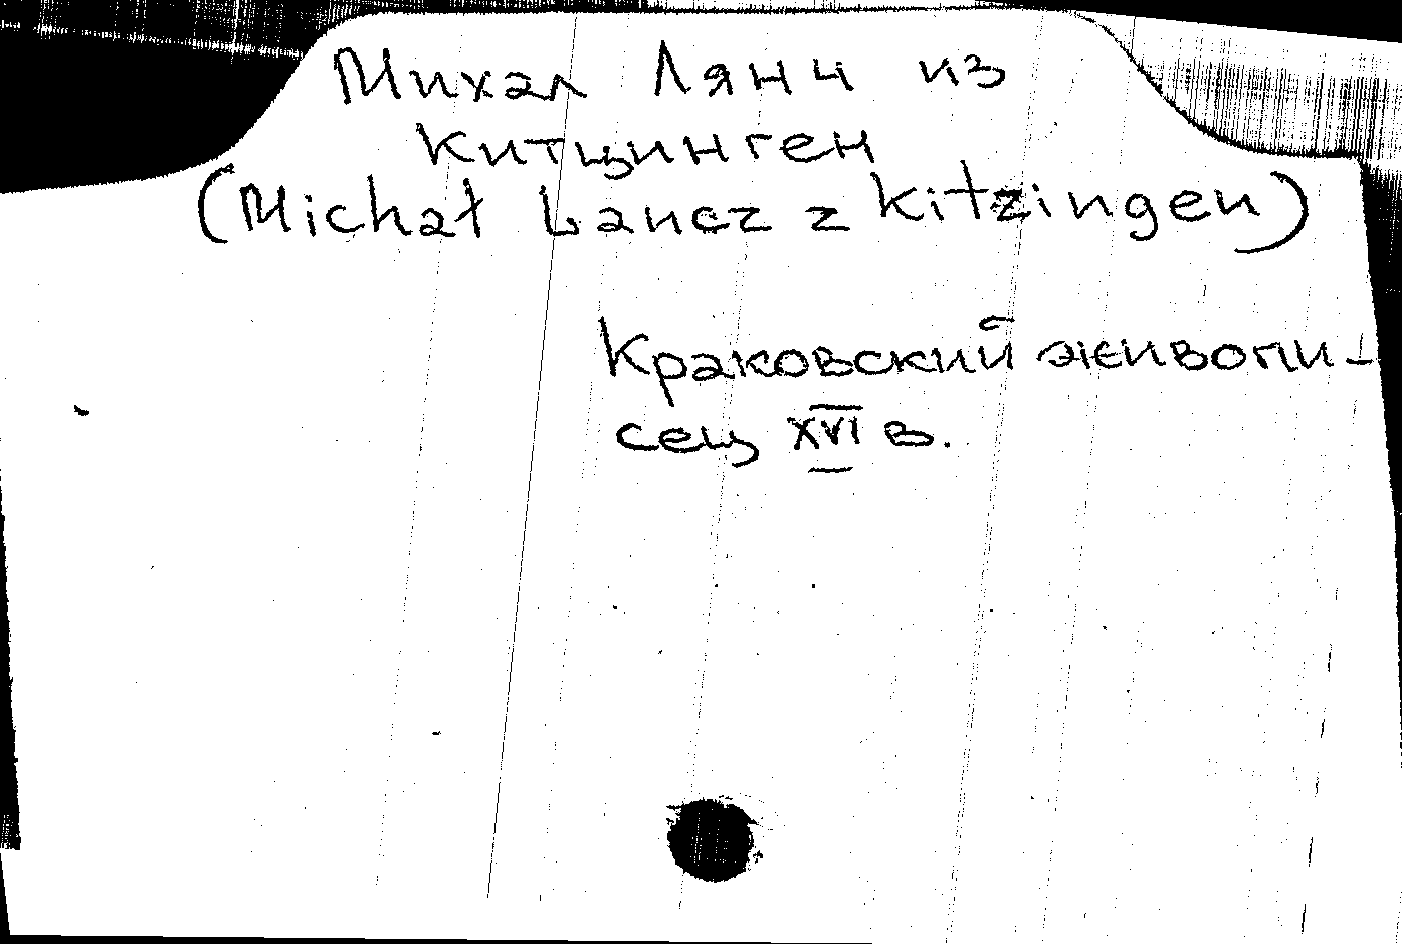 Михал Лянч из
Китцинген
(Michał Lancz z Kitzingen)
Краковский живопи-
сец XVI в.